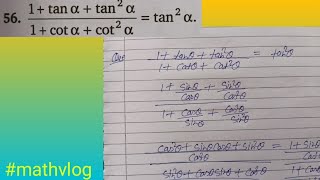 56. (1 + tan α + tan² α) / (1 + cot α + cot² α) = tan² α.
Que (1 + tanθ + tan²θ) / (1 + cotθ + cot²θ) = tan²θ
(1 + sinθ/cosθ + sin²θ/cos²θ) / (1 + cosθ/sinθ + cos²θ/sin²θ)
(cos²θ + sinθ cosθ + sin²θ) / cos²θ = 1 + sinθ
sin²θ + cosθ sinθ + cos²θ
#mathvlog